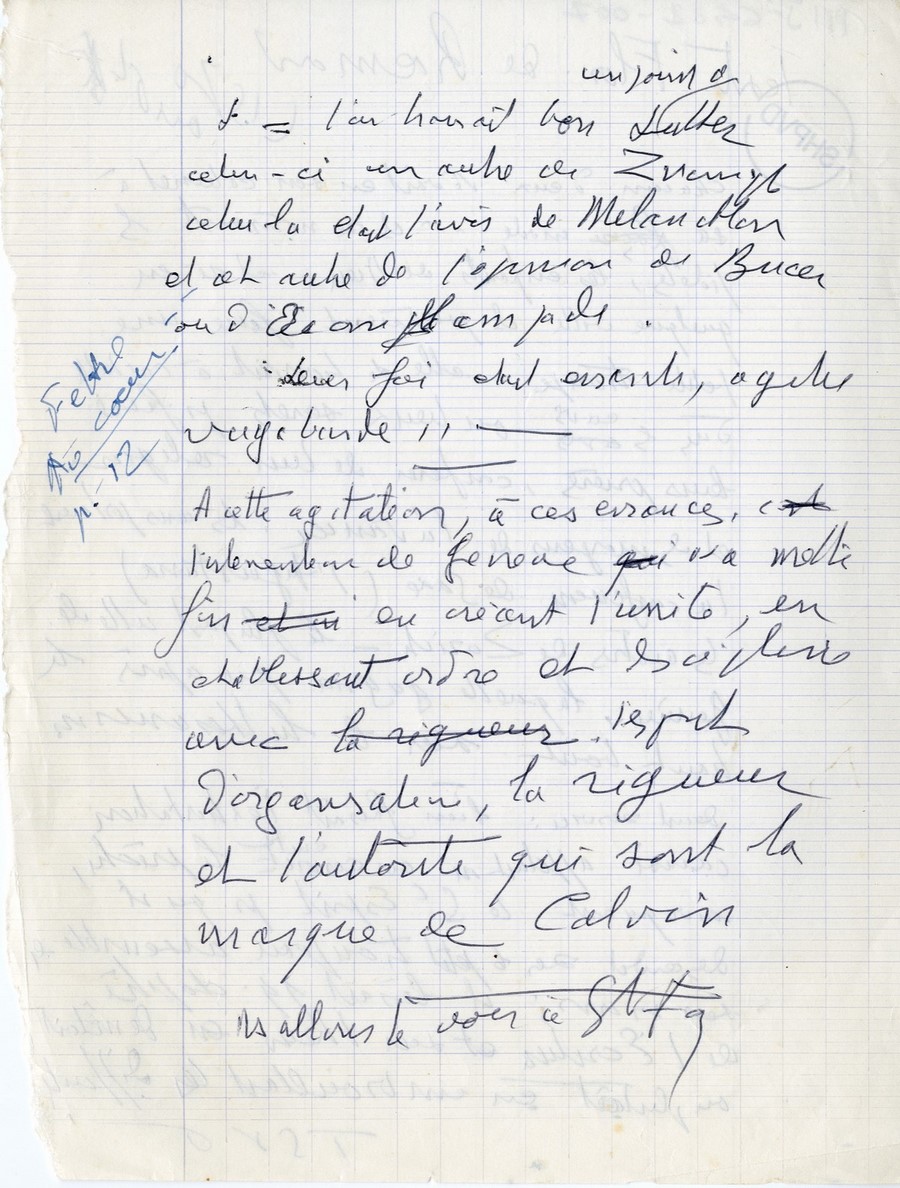 un jour de
l'un trouvait bon Luther
celui-ci un autre de Zwingli
celui là était l'avis de Melanchton
et cet autre de l'opinion de Bucer
ou d'Œcolampade.
Leur foi était errante, agitée
vagabonde
Febvre
Au coeur
p. 12
A cette agitation, à ces errances,
l'intervention de Geneve qui va mettre
fin et en créant l'unité, en
etablissant ordre et discipline
avec la rigueur l'esprit
d'organisation, la rigueur
et l'autorité qui sont la
marque de Calvin
Ns allons le voir à